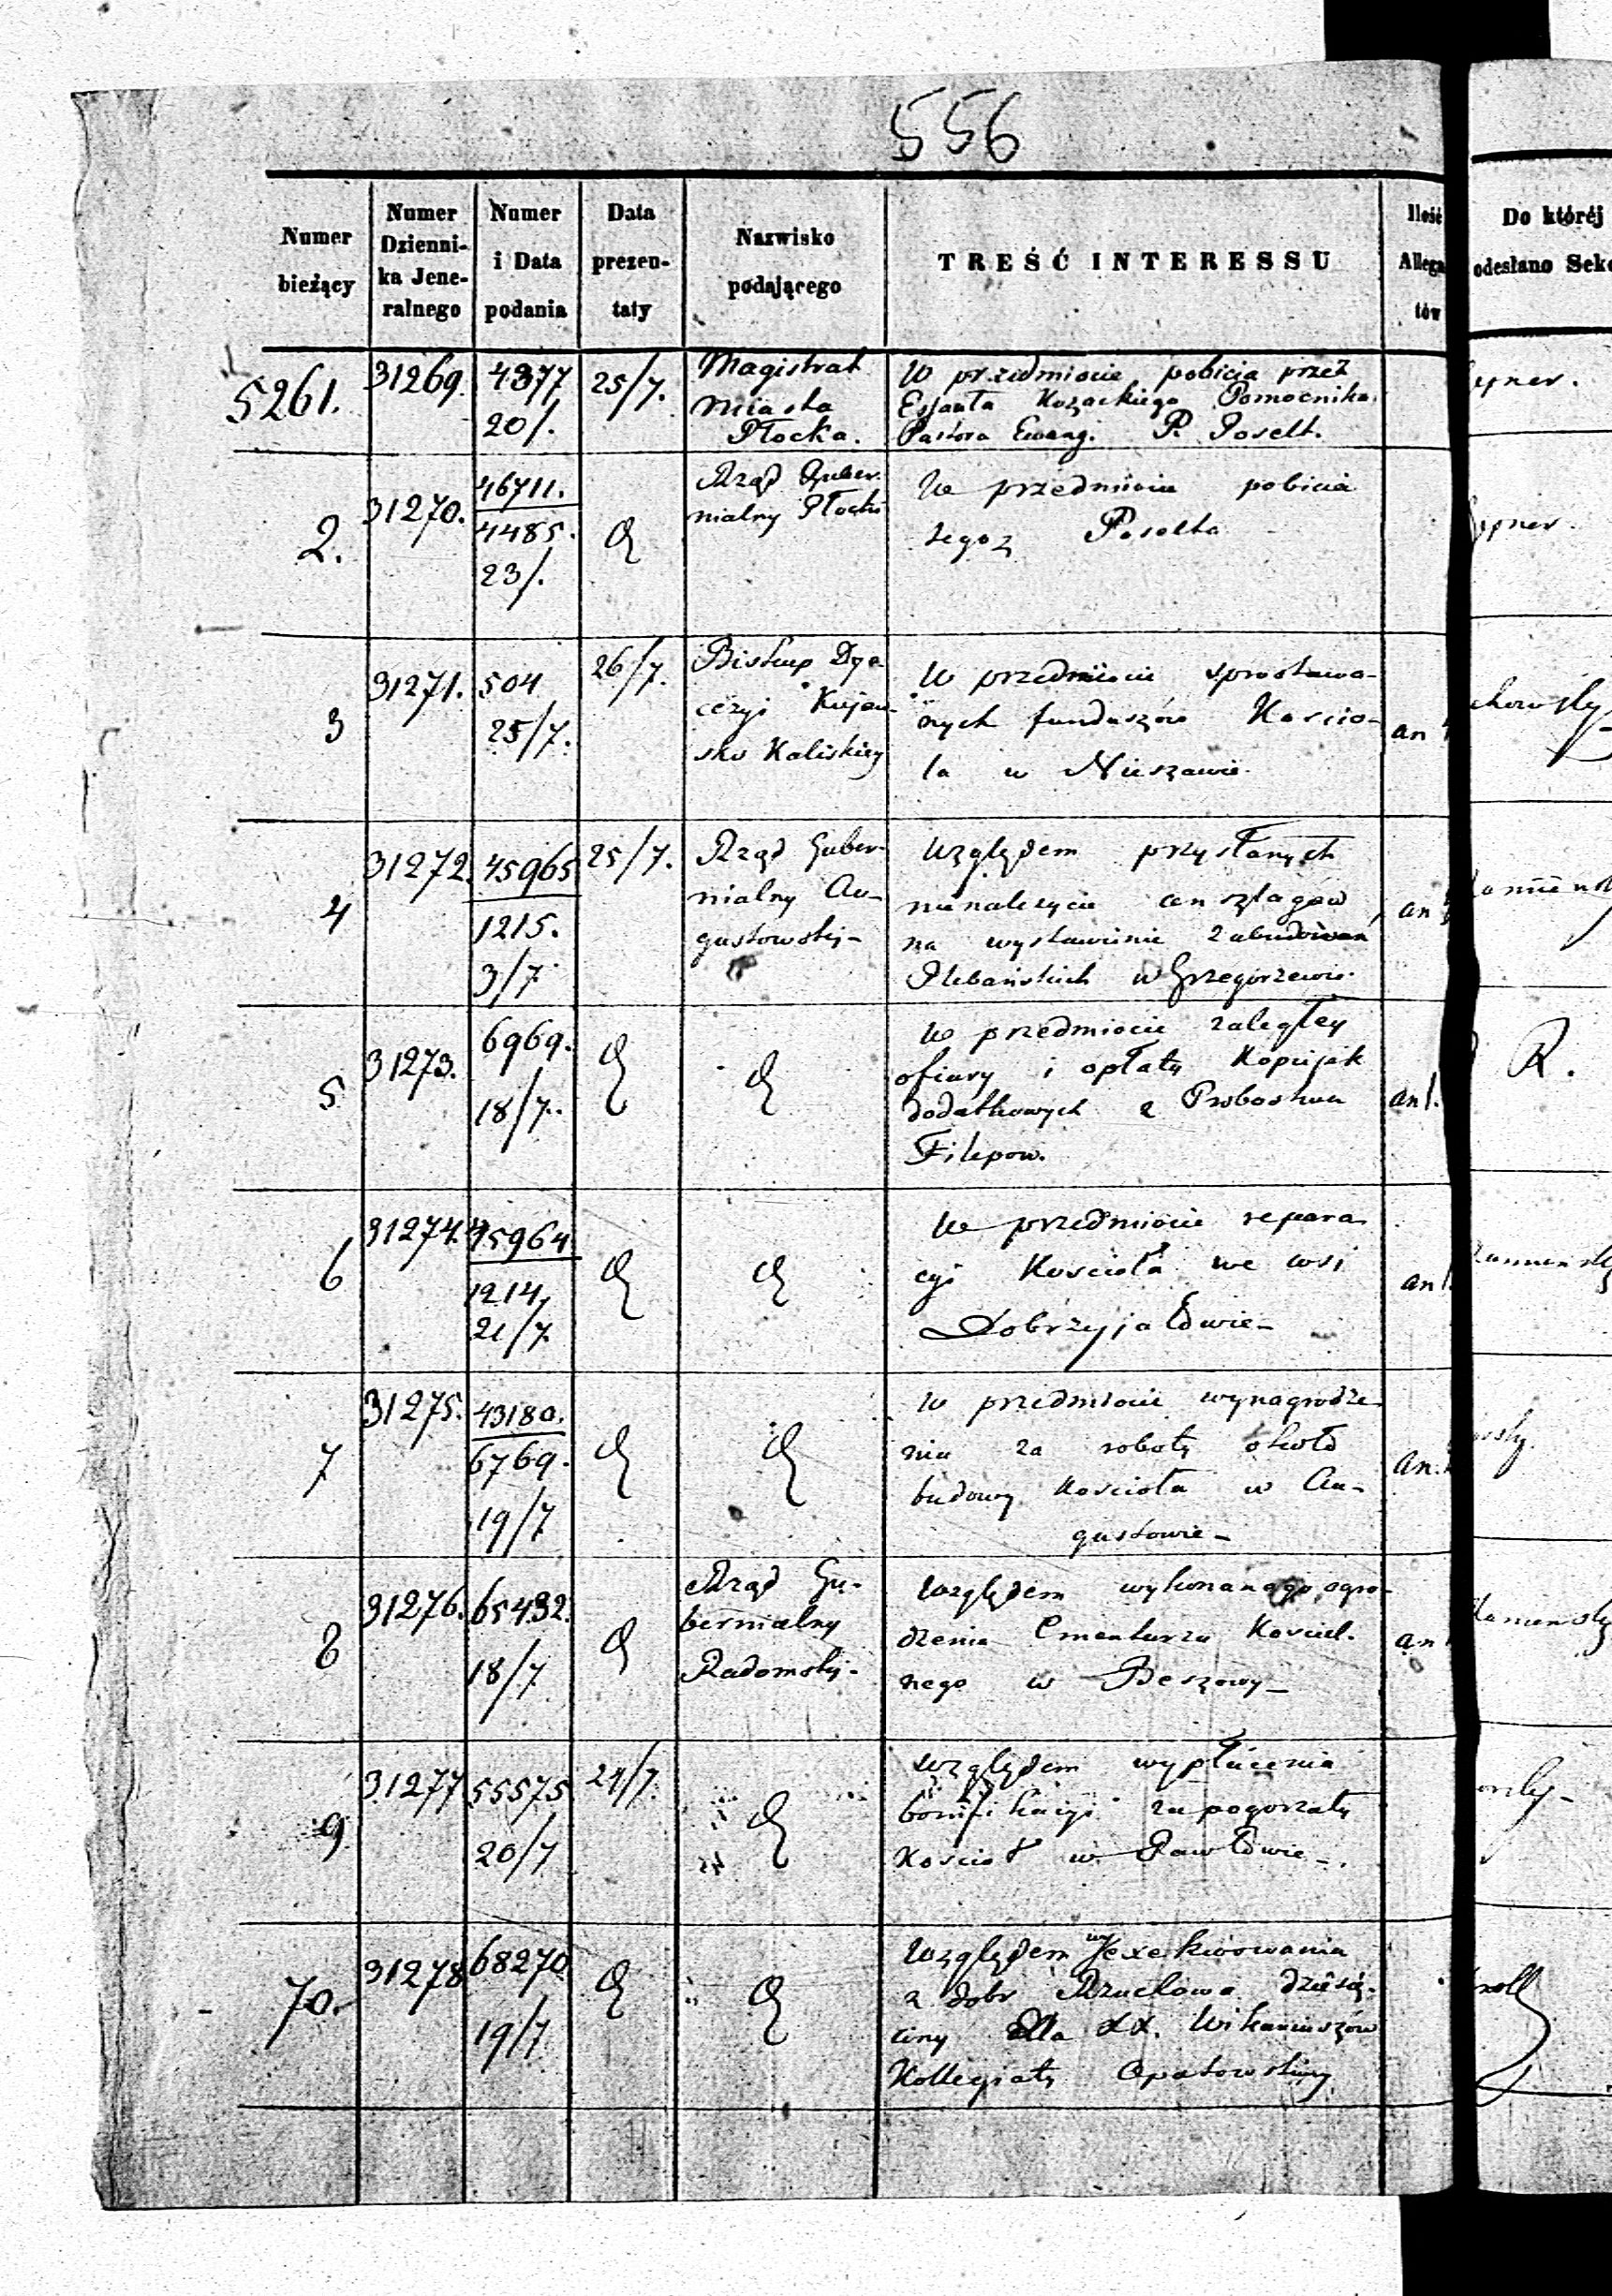 556
Numer bieżący
Numer Dzienni-ka Jene-ralnego
Numer i Data podania
Data prezen-taty
Nazwisko podającego
TREŚĆ INTERESSU
Ilość Allega tów
Do której
odesłano Sek
5261. 31269. 4377 20/. 25/7.
Magistrat
Miasta
Płocka.
W przedmiocie pobicia przez
Essauła Kozackiego Pomocnika
Pastora Ewang. P. Poselt.
2. 31270. 46711. 4485. 23/.
Rząd Guber-
nialny Płocki
W przedmiocie pobicia
tegoż Poselta
3 31271. 504 25/7. 26/7.
Biskup Dye-
cezyi Kujaw-
sko Kaliskiey
W przedmiocie sprostowa-
nych funduszów Kościo-
ła w Nieszawie.
an
4 31272. 45965 1215. 3/7. 25/7.
Rząd Guber-
nialny Au-
gustowski-
Względem przysłanych
nienależycie anszlagów
na wystawienie zabudowań
Plebańskich w Grzegorzewie.
an
5 31273. 6969. 18/7.
W przedmiocie zaległey
ofiary i opłaty Kopijek
dodatkowych z Probostwa
Filipow.
an 1.
R.
6 31274. 45964 1214, 21/7.
W przedmiocie repara
cyi Kościoła we wsi
Dobrzyjałowie-
an 1.
7 31275. 43180. 6769. 19/7
W przedmiocie wynagrodze-
nia za roboty około
budowy Kościoła w Au-
gustowie-
an.
8 31276. 65432. 18/7
Rząd Gu-
bernialny
Radomski-
Względem wykonanego ogro-
dzenia Cmentarza Kościel.
nego w Beszowy-
an
9 31277 55575 20/7 24/7.
Względem wypłacenia
bonifikacyi za pogorzały
Kościoł w Pawłowie-.
70. 31278 68270 19/7
Względem wyexekwowania
z dobr Dziesię-
ciny dla XX. Wikaryuszów
Kollegiaty Opatowskiey